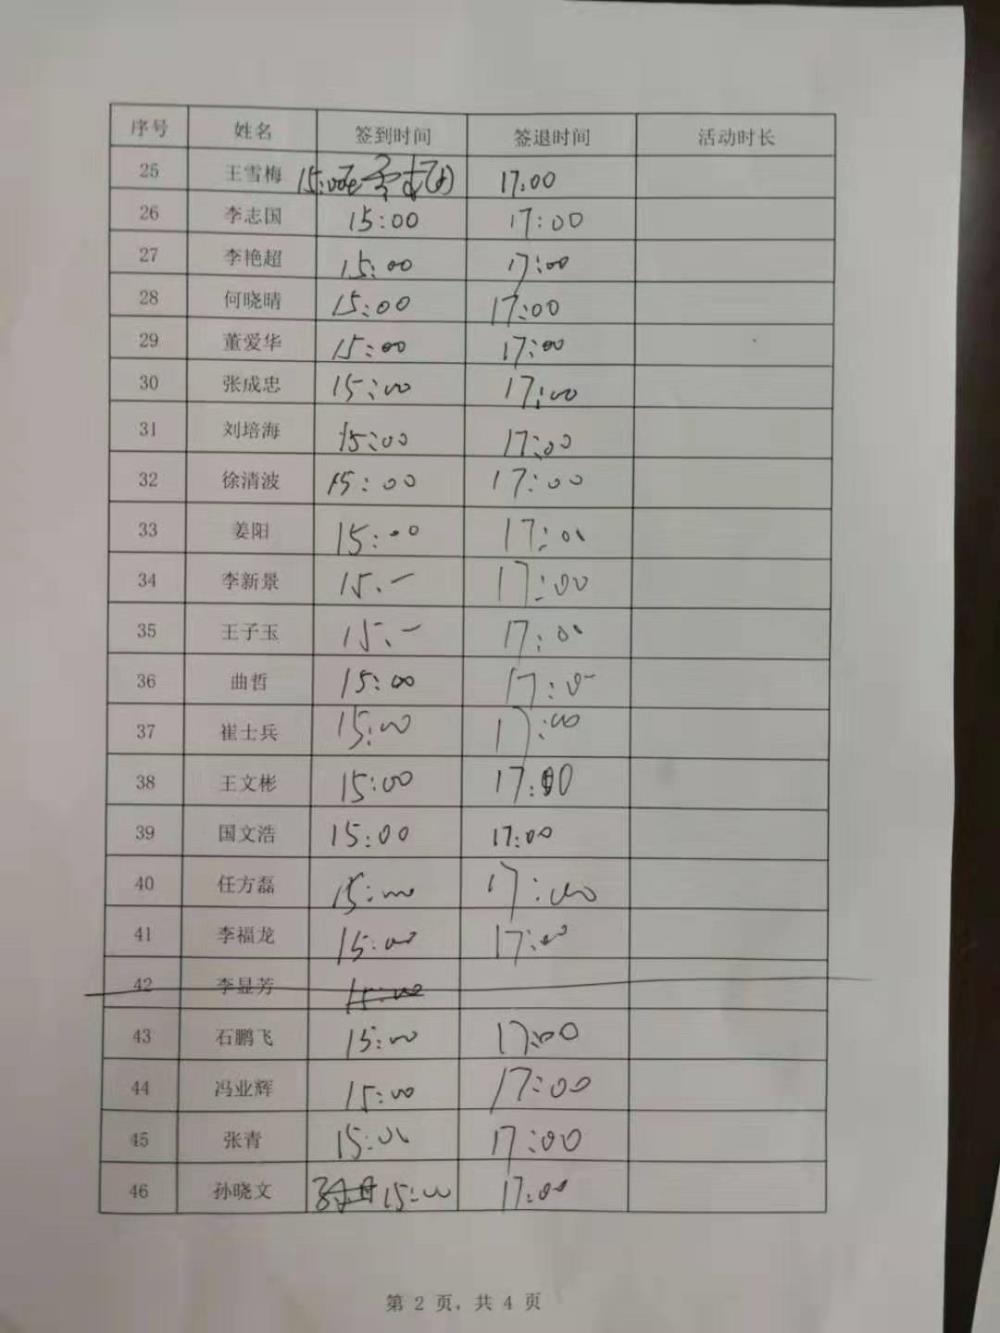 序号 姓名 签到时间 签退时间 活动时长
25 王雪梅 15:00 17:00
26 李志国 15:00 17:00
27 李艳超 15:00 17:00
28 何晓晴 15:00 17:00
29 董爱华 15:00 17:00
30 张成忠 15:00 17:00
31 刘培海 15:00 17:00
32 徐清波 15:00 17:00
33 姜阳 15:00 17:00
34 李新景 15.- 17:00
35 王子玉 15.- 17:00
36 曲哲 15:00 17:00
37 崔士兵 15:00 17:00
38 王文彬 15:00 17:00
39 国文浩 15:00 17:00
40 任方磊 15:00 17:00
41 李福龙 15:00 17:00
42 李显芳 15:00
43 石鹏飞 15:00 17:00
44 冯业辉 15:00 17:00
45 张青 15:00 17:00
46 孙晓文 15:00 17:00
第 2 页，共 4 页